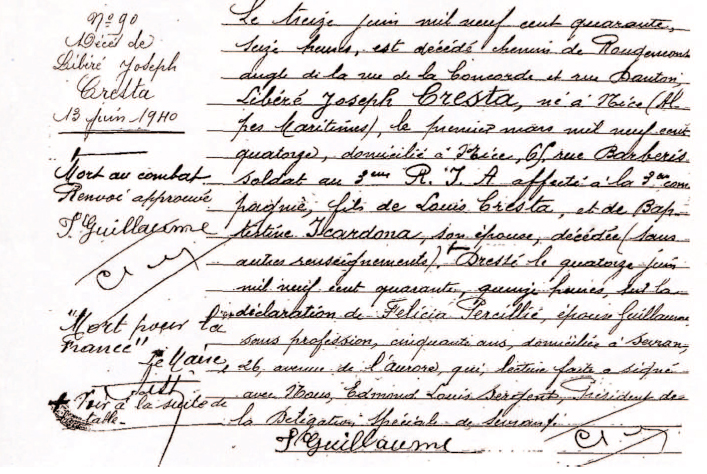 N° 90
Décès de
Libéré Joseph
Cresta
13 juin 1940
Mort au combat
Renvoi approuvé
F. Guillaume
"Mort pour la
France"
Le Maire
+ Voir à la suite de
table.
Le treize juin mil neuf cent quarante,
seize heures, est décédé chemin de Rougemont
angle de la rue de la Concorde et rue Danton
Libéré Joseph Cresta, né à Nice (Al
pes Maritimes), le premier mars mil neuf cent
quatorze, domicilié à Nice, 65, rue Barberis
soldat au 3eme R. I. A affecté à la 3eme com
pagnie, fils de Louis Cresta, et de Bap
testine Icardona, son épouse, décédée (sans
autres renseignements). + Dressé le quatorze juin
mil neuf cent quarante, quinze heures, sur la
déclaration de Felicia Percillié, épouse Guillaume
sans profession, cinquante ans, domiciliée à Sevran,
26, avenue de l'aurore, qui, lecture faite a signé
avec Nous, Edmond Louis Sergent, Président de
la Délégation Spéciale de Sevran.
F. Guillaume